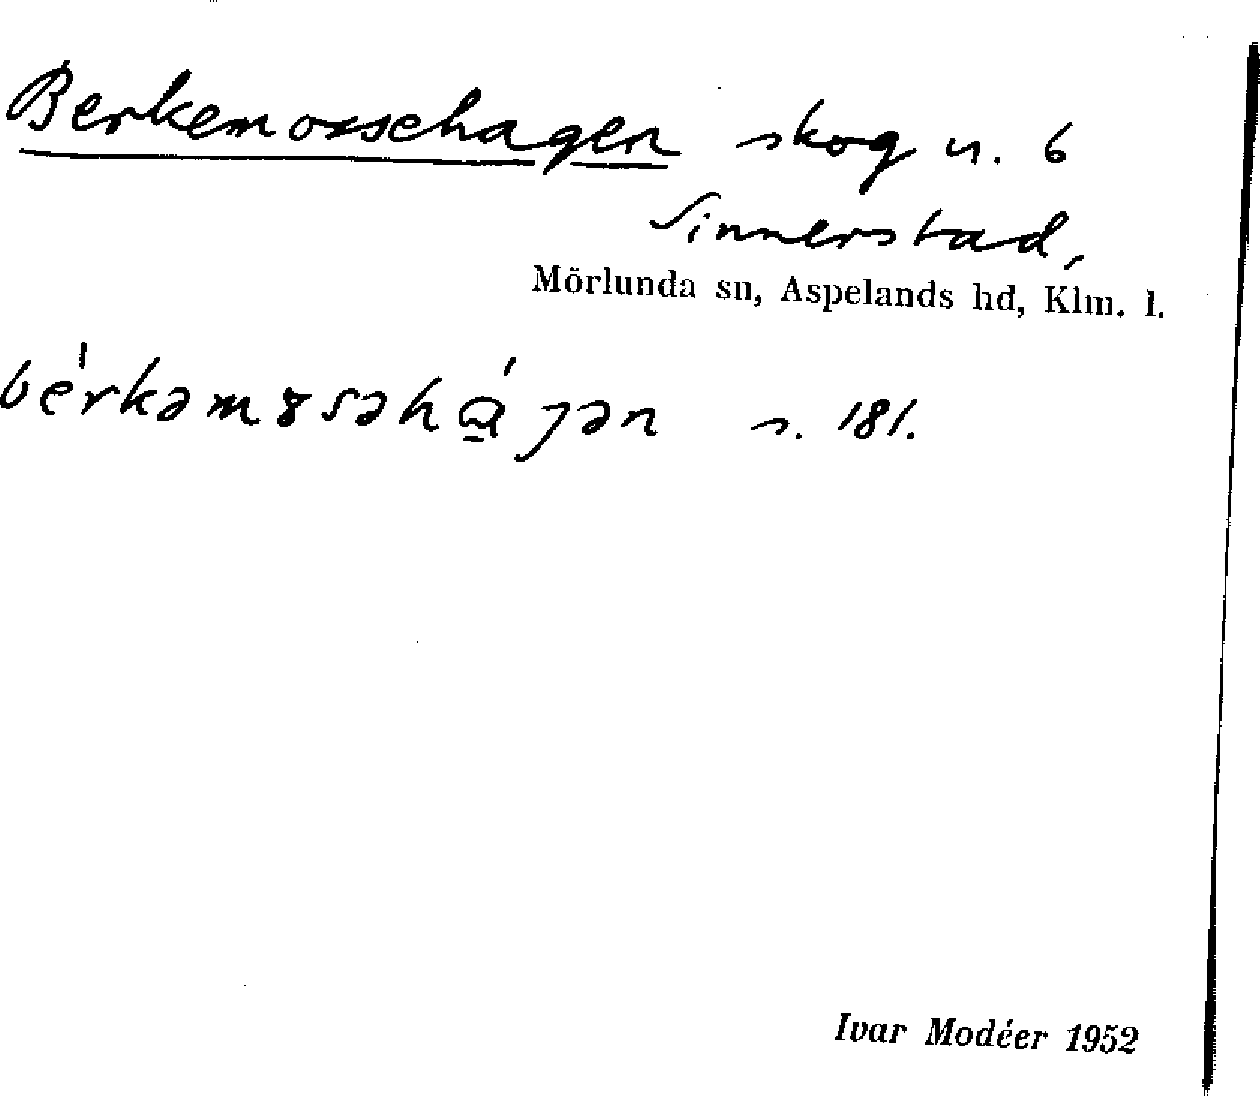 Berkemossehagen skog n. 6
Sinnerstad,
Mörlunda sn, Aspelands hd, Klm. l.
bérkəmɤsəhá̱ɡən s. 181.
Ivar Modéer 1952